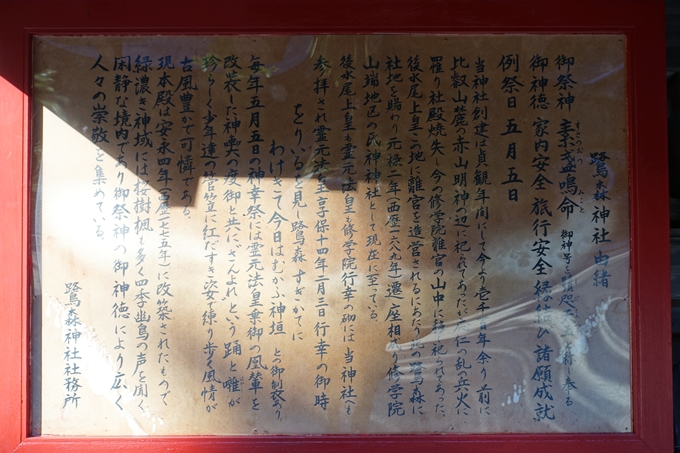 鷺森神社由緒
御祭神 素盞嗚命 御神号を
すさのおのみこと
御神徳 家内安全 旅行安全 縁結び 諸願成就
例祭日 五月五日
当神社創建は貞観年間にして今より壱千百年余り前に
比叡山麓の赤山明神の辺に祀られてあったが応仁の乱の兵火に
罹り社殿焼失し今の修学院離宮の山中に移し祀られてあった。
後水尾上皇この地に離宮を造営されるにあたり此の鷺森に
社地を賜わり元禄二年(西暦一六八九年)遷座相成り修学院
山端地区の氏神神社として現在に至っている。
後水尾上皇も霊元法皇も修学院行幸の砌には当神社へも
参拝され霊元法皇享保十四年二月三日行幸の御時
をりゐるを見し鷺森すぎがてに
わけきて今日はむかふ神垣 との御製あり
毎年五月五日の神幸祭には霊元法皇乗御の鳳輦を
改装した神輿の渡御と共に“さんよれ”という踊と囃が
珍らしく少年達の菅笠に紅だすき姿で練り歩く風情が
古風豊かで可憐である。
現本殿は安永四年(西暦一七七五年)に改築されたもので
緑濃き神域には桜樹楓も多く四季幽鳥の声を聞く
閑静な境内であり御祭神の御神徳により広く
人々の崇敬を集めている。
鷺森神社社務所